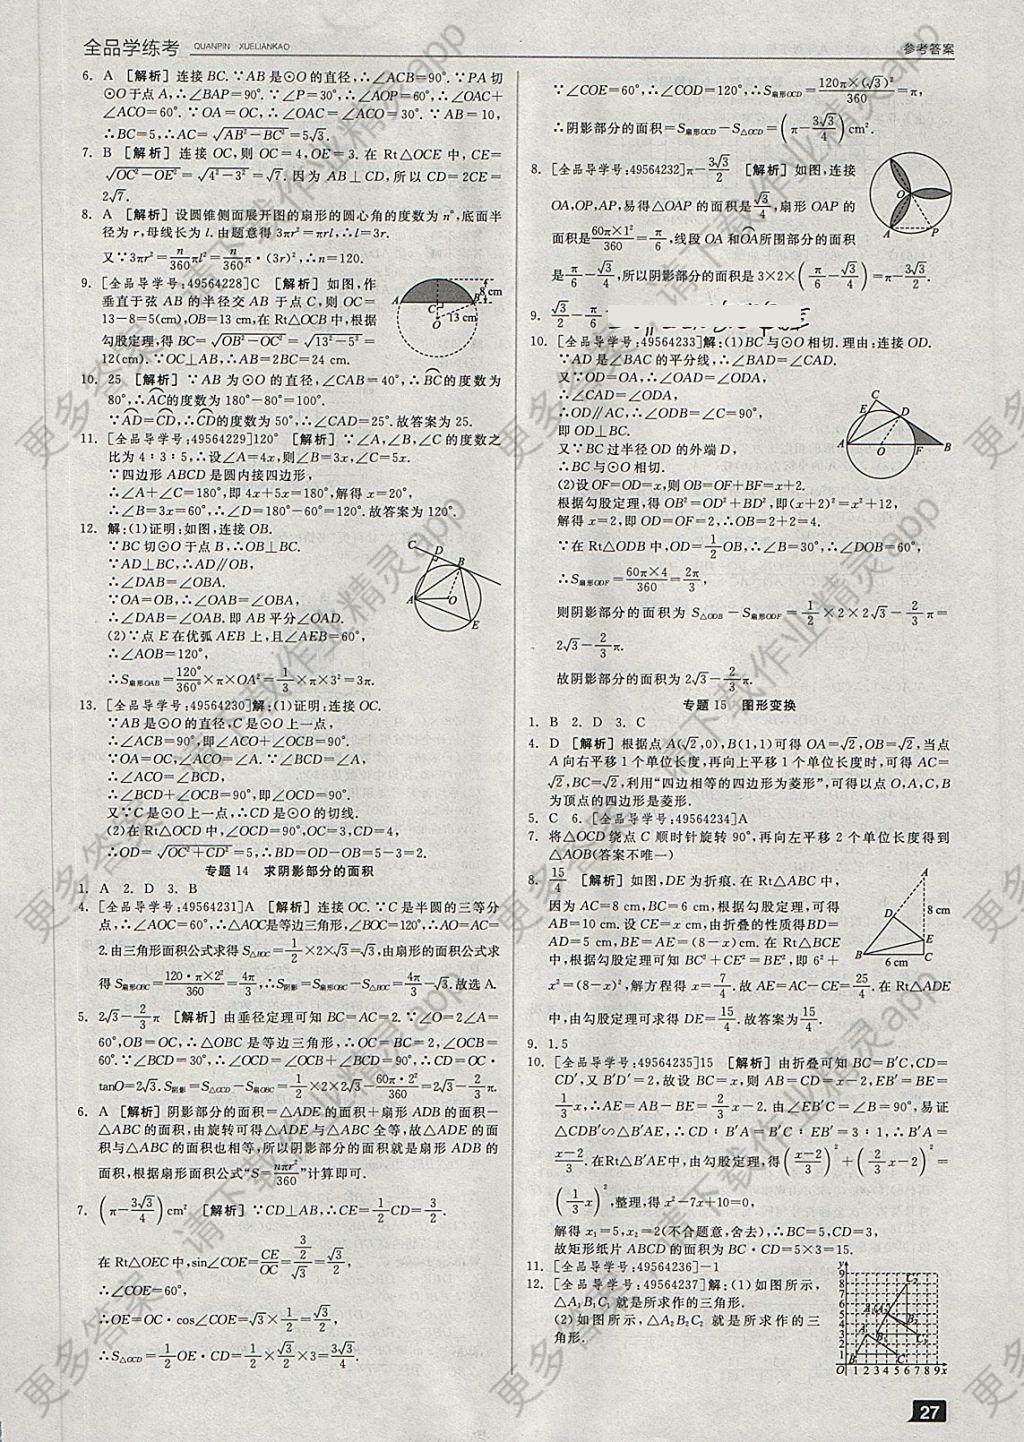 全品学练考 QUANPIN XUELIANKAO
参考答案
6. A [解析] 连接 BC. ∵AB 是⊙O 的直径,∴∠ACB=90°. ∵PA 切
⊙O 于点 A,∴∠BAP=90°. ∵∠P=30°,∴∠AOP=60°,∴∠OAC+
∠ACO=60°. ∵OA=OC,∴∠OAC=∠ACO=30°. ∵AB=10,
∴BC=5,∴AC=√(AB²-BC²)=5√3.
7. B [解析] 连接 OC,则 OC=4,OE=3. 在 Rt△OCE 中,CE=
√(OC²-OE²)=√(4²-3²)=√7. 因为 AB⊥CD,所以 CD=2CE=
2√7.
8. A [解析] 设圆锥侧面展开图的扇形的圆心角的度数为 n°,底面半
径为 r,母线长为 l. 由题意得 3πr²=πrl,∴l=3r.
又∵3πr²=n/360 πl²=n/360 π·(3r)²,∴n=120.
9. [全品导学号:49564228]C [解析] 如图,作
垂直于弦 AB 的半径交 AB 于点 C,则 OC=
13-8=5(cm),OB=13 cm,在 Rt△OCB 中,根据
勾股定理,得 BC=√(OB²-OC²)=√(13²-5²)=
12(cm). ∵OC⊥AB,∴AB=2BC=24 cm.
A C B O 8 cm 13 cm
10. 25 [解析] ∵AB 为⊙O 的直径,∠CAB=40°,∴BC的度数为
80°,∴AC的度数为 180°-80°=100°.
∵AD=CD,∴CD的度数为 50°,∴∠CAD=25°. 故答案为 25.
11. [全品导学号:49564229]120° [解析] ∵∠A,∠B,∠C 的度数之
比为 4∶3∶5,∴设∠A=4x,则∠B=3x,∠C=5x.
∵四边形 ABCD 是圆内接四边形,
∴∠A+∠C=180°,即 4x+5x=180°,解得 x=20°,
∴∠B=3x=60°,∴∠D=180°-60°=120°. 故答案为 120°.
12. 解:(1)证明:如图,连接 OB.
∵BC 切⊙O 于点 B,∴OB⊥BC.
∵AD⊥BC,∴AD∥OB,
∴∠DAB=∠OBA.
∵OA=OB,∴∠OAB=∠OBA,
∴∠DAB=∠OAB. 即 AB 平分∠OAD.
(2)∵点 E 在优弧 AEB 上,且∠AEB=60°,
∴∠AOB=120°,
∴S扇形OAB=120°/360°×π×OA²=1/3×π×3²=3π.
C D B A O E
13. [全品导学号:49564230]解:(1)证明:连接 OC.
∵AB 是⊙O 的直径,C 是⊙O 上一点,
∴∠ACB=90°,即∠ACO+∠OCB=90°.
∵OA=OC,∴∠ACO=∠A. ∵∠BCD=∠A,
∴∠ACO=∠BCD,
∴∠BCD+∠OCB=90°,即∠OCD=90°.
又∵C 是⊙O 上一点,∴CD 是⊙O 的切线.
(2)在 Rt△OCD 中,∠OCD=90°,OC=3,CD=4,
∴OD=√(OC²+CD²)=5,∴BD=OD-OB=5-3=2.
专题 14 求阴影部分的面积
1. A 2. D 3. B
4. [全品导学号:49564231]A [解析] 连接 OC. ∵C 是半圆的三等分
点,∴∠AOC=60°,∴△AOC是等边三角形,∠BOC=120°,∴AO=AC=
2. 由三角形面积公式求得 S△BOC=1/2×2×√3=√3,由扇形的面积公式求
得 S扇形OBC=120·π×2²/360=4π/3,∴S阴影=S扇形OBC-S△OBC=4π/3-√3. 故选 A.
5. 2√3-2/3π [解析] 由垂径定理可知 BC=AC=2. ∵∠O=2∠A=
60°,OB=OC,∴△OBC 是等边三角形,∴OC=BC=2,∠OCB=
60°. ∵∠BCD=30°,∴∠OCD=∠OCB+∠BCD=90°,∴CD=OC·
tanO=2√3. S阴影=S△OCD-S扇OBC=1/2×2×2√3-60π·2²/360=2√3-2/3π.
6. A [解析] 阴影部分的面积=△ADE 的面积+扇形 ADB 的面积-
△ABC 的面积,由旋转可得△ADE 与△ABC 全等,故△ADE 的面
积与△ABC 的面积也相等,所以阴影部分的面积就是扇形 ADB 的
面积,根据扇形面积公式“S=nπr²/360”计算即可.
7. (π-3√3/4)cm² [解析] ∵CD⊥AB,∴CE=1/2CD=3/2.
在 Rt△OEC 中,sin∠COE=CE/OC=(3/2)/√3=√3/2,
∴∠COE=60°,
∴OE=OC·cos∠COE=√3×1/2=√3/2,
∴S△OCD=1/2OE·CD=1/2×√3/2×3=3√3/4.
∵∠COE=60°,∴∠COD=120°,∴S扇形OCD=120π×(√3)²/360=π,
∴阴影部分的面积=S扇形OCD-S△OCD=(π-3√3/4)cm².
8. [全品导学号:49564232]π-3√3/2 [解析] 如图,连接
OA,OP,AP,易得△OAP 的面积是√3/4,扇形 OAP 的
面积是60π×1²/360=π/6,线段 OA 和OA所围部分的面积
是π/6-√3/4,所以阴影部分的面积是 3×2×(π/6-√3/4)=π-3√3/2.
O A P
9. √3/2-π/6
10. [全品导学号:49564233]解:(1)BC 与⊙O 相切. 理由:连接 OD.
∵AD 是∠BAC 的平分线,∴∠BAD=∠CAD.
又∵OD=OA,∴∠OAD=∠ODA,
∴∠CAD=∠ODA,
∴OD∥AC,∴∠ODB=∠C=90°,
即 OD⊥BC.
又∵BC 过半径 OD 的外端 D,
∴BC 与⊙O 相切.
(2)设 OF=OD=x,则 OB=OF+BF=x+2.
根据勾股定理,得 OB²=OD²+BD²,即(x+2)²=x²+12,
解得 x=2,即 OD=OF=2,∴OB=2+2=4.
∵在 Rt△ODB 中,OD=1/2OB,∴∠B=30°,∴∠DOB=60°,
∴S扇形ODF=60π×4/360=2π/3,
则阴影部分的面积为 S△ODB-S扇形ODF=1/2×2×2√3-2/3π=
2√3-2/3π.
故阴影部分的面积为 2√3-2/3π.
C E D A O F B
专题 15 图形变换
1. B 2. D 3. C
4. D [解析] 根据点 A(√2,0),B(1,1)可得 OA=√2,OB=√2,当点
A 向右平移 1 个单位长度,再向上平移 1 个单位长度时,可得 AC=
√2,BC=√2,利用“四边相等的四边形为菱形”,可得以点 O,A,C,B
为顶点的四边形是菱形.
5. C 6. [全品导学号:49564234]A
7. 将△OCD 绕点 C 顺时针旋转 90°,再向左平移 2 个单位长度得到
△AOB(答案不唯一)
8. 15/4 [解析] 如图,DE 为折痕. 在 Rt△ABC 中,
因为 AC=8 cm,BC=6 cm,根据勾股定理,可得
AB=10 cm. 设 CE=x cm,由折叠的性质得BD=
AD=5 cm,BE=AE=(8-x)cm. 在 Rt△BCE
中,根据勾股定理可知 BC²+CE²=BE²,即 6²+
x²=(8-x)²,解方程得 x=7/4. 故 AE=AC-CE=25/4. 在 Rt△ADE
中,由勾股定理可求得 DE=15/4. 故答案为15/4.
A D E B C 8 cm 6 cm
9. 1.5
10. [全品导学号:49564235]15 [解析] 由折叠可知 BC=B′C,CD=
CD′,又 B′D′=2,故设 BC=x,则 AB=CD=x-2,EB′=BE=
1/3x,∴AE=AB-BE=2/3x-2. 由∠EB′C=∠B=90°,易证
△CDB′∽△B′AE,∴CD∶B′A=B′C∶EB′=3∶1,∴B′A=
(x-2)/3. 在Rt△B′AE中,由勾股定理,得((x-2)/3)²+(2/3x-2)²=
(1/3x)²,整理,得 x²-7x+10=0,
解得 x₁=5,x₂=2(不合题意,舍去),∴BC=5,CD=3,
故矩形纸片 ABCD 的面积为 BC·CD=5×3=15.
11. [全品导学号:49564236]-1
12. [全品导学号:49564237]解:(1)如图所示,
△A₁B₁C₁ 就是所求作的三角形.
(2)如图所示,△A₂B₂C₂ 就是所求作的三
角形.
27